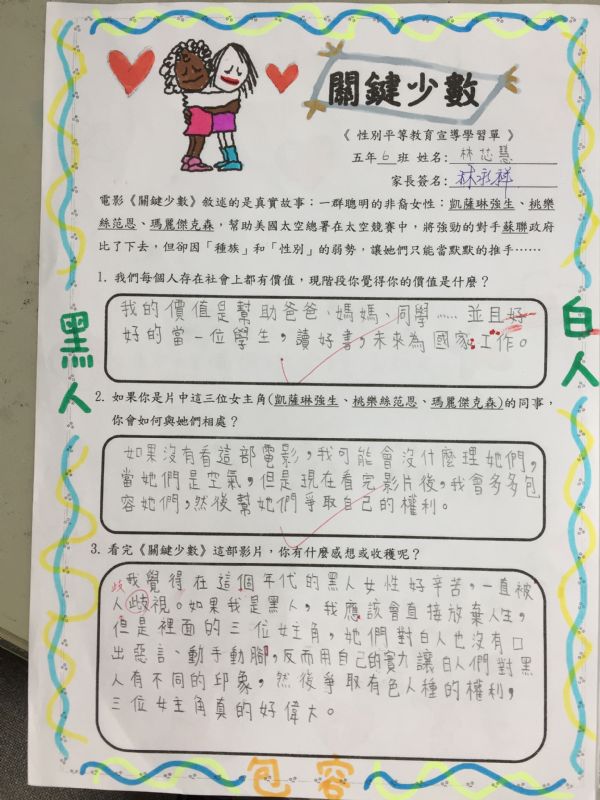 關鍵少數
《 性別平等教育宣導學習單 》
五年6班 姓名: 林芯慧
家長簽名: 林承祥
電影《關鍵少數》敘述的是真實故事：一群聰明的非裔女性：凱薩琳強生、桃樂
絲范恩、瑪麗傑克森，幫助美國太空總署在太空競賽中，將強勁的對手蘇聯政府
比了下去，但卻因「種族」和「性別」的弱勢，讓她們只能當默默的推手……
黑人
白人
1. 我們每個人存在社會上都有價值，現階段你覺得你的價值是什麼？
我的價值是幫助爸爸、媽媽、同學……並且好
好的當一位學生，讀好書，未來為國家工作。
2. 如果你是片中這三位女主角(凱薩琳強生、桃樂絲范恩、瑪麗傑克森)的同事，
你會如何與她們相處？
如果沒有看這部電影，我可能會沒什麼理她們，
當她們是空氣，但是現在看完影片後，我會多多包
容她們，然後幫她們爭取自己的權利。
3. 看完《關鍵少數》這部影片，你有什麼感想或收穫呢？
我覺得在這個年代的黑人女性好辛苦，一直被
歧
人歧視。如果我是黑人，我應該會直接放棄人生，
但是裡面的三位女主角，她們對白人也沒有口
出惡言、動手動腳，反而用自己的實力讓白人們對黑
人有不同的印象，然後爭取有色人種的權利，
三位女主角真的好偉大。
包容